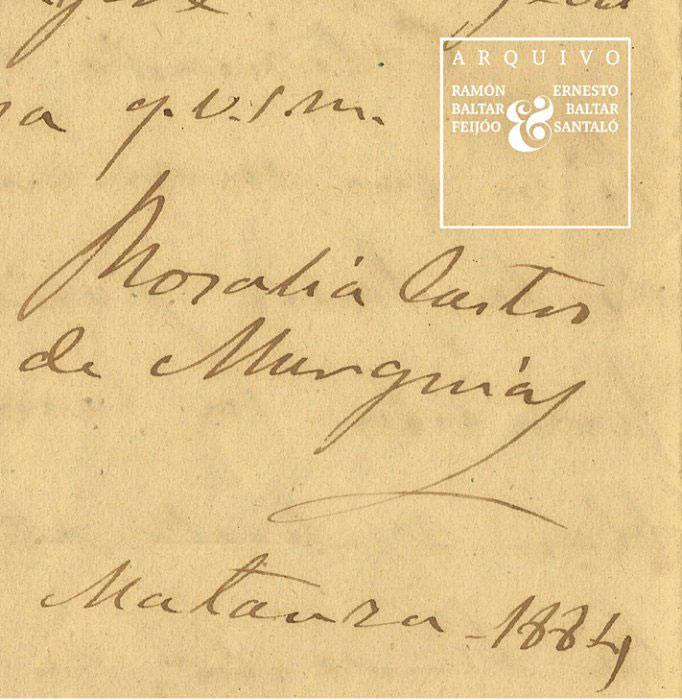 a q.v.s.m.
Rosalía Castro
de Murguía
Matanza - 1884
ARQUIVO
RAMÓN
BALTAR
FEIJÓO
&
ERNESTO
BALTAR
SANTALÓ